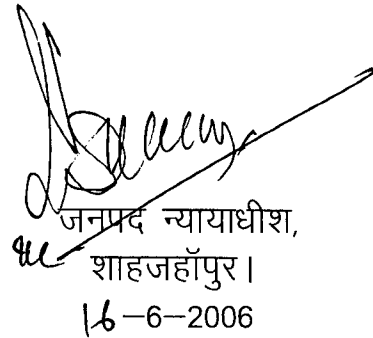 जनपद न्यायाधीश,
शाहजहॉपुर।
16-6-2006